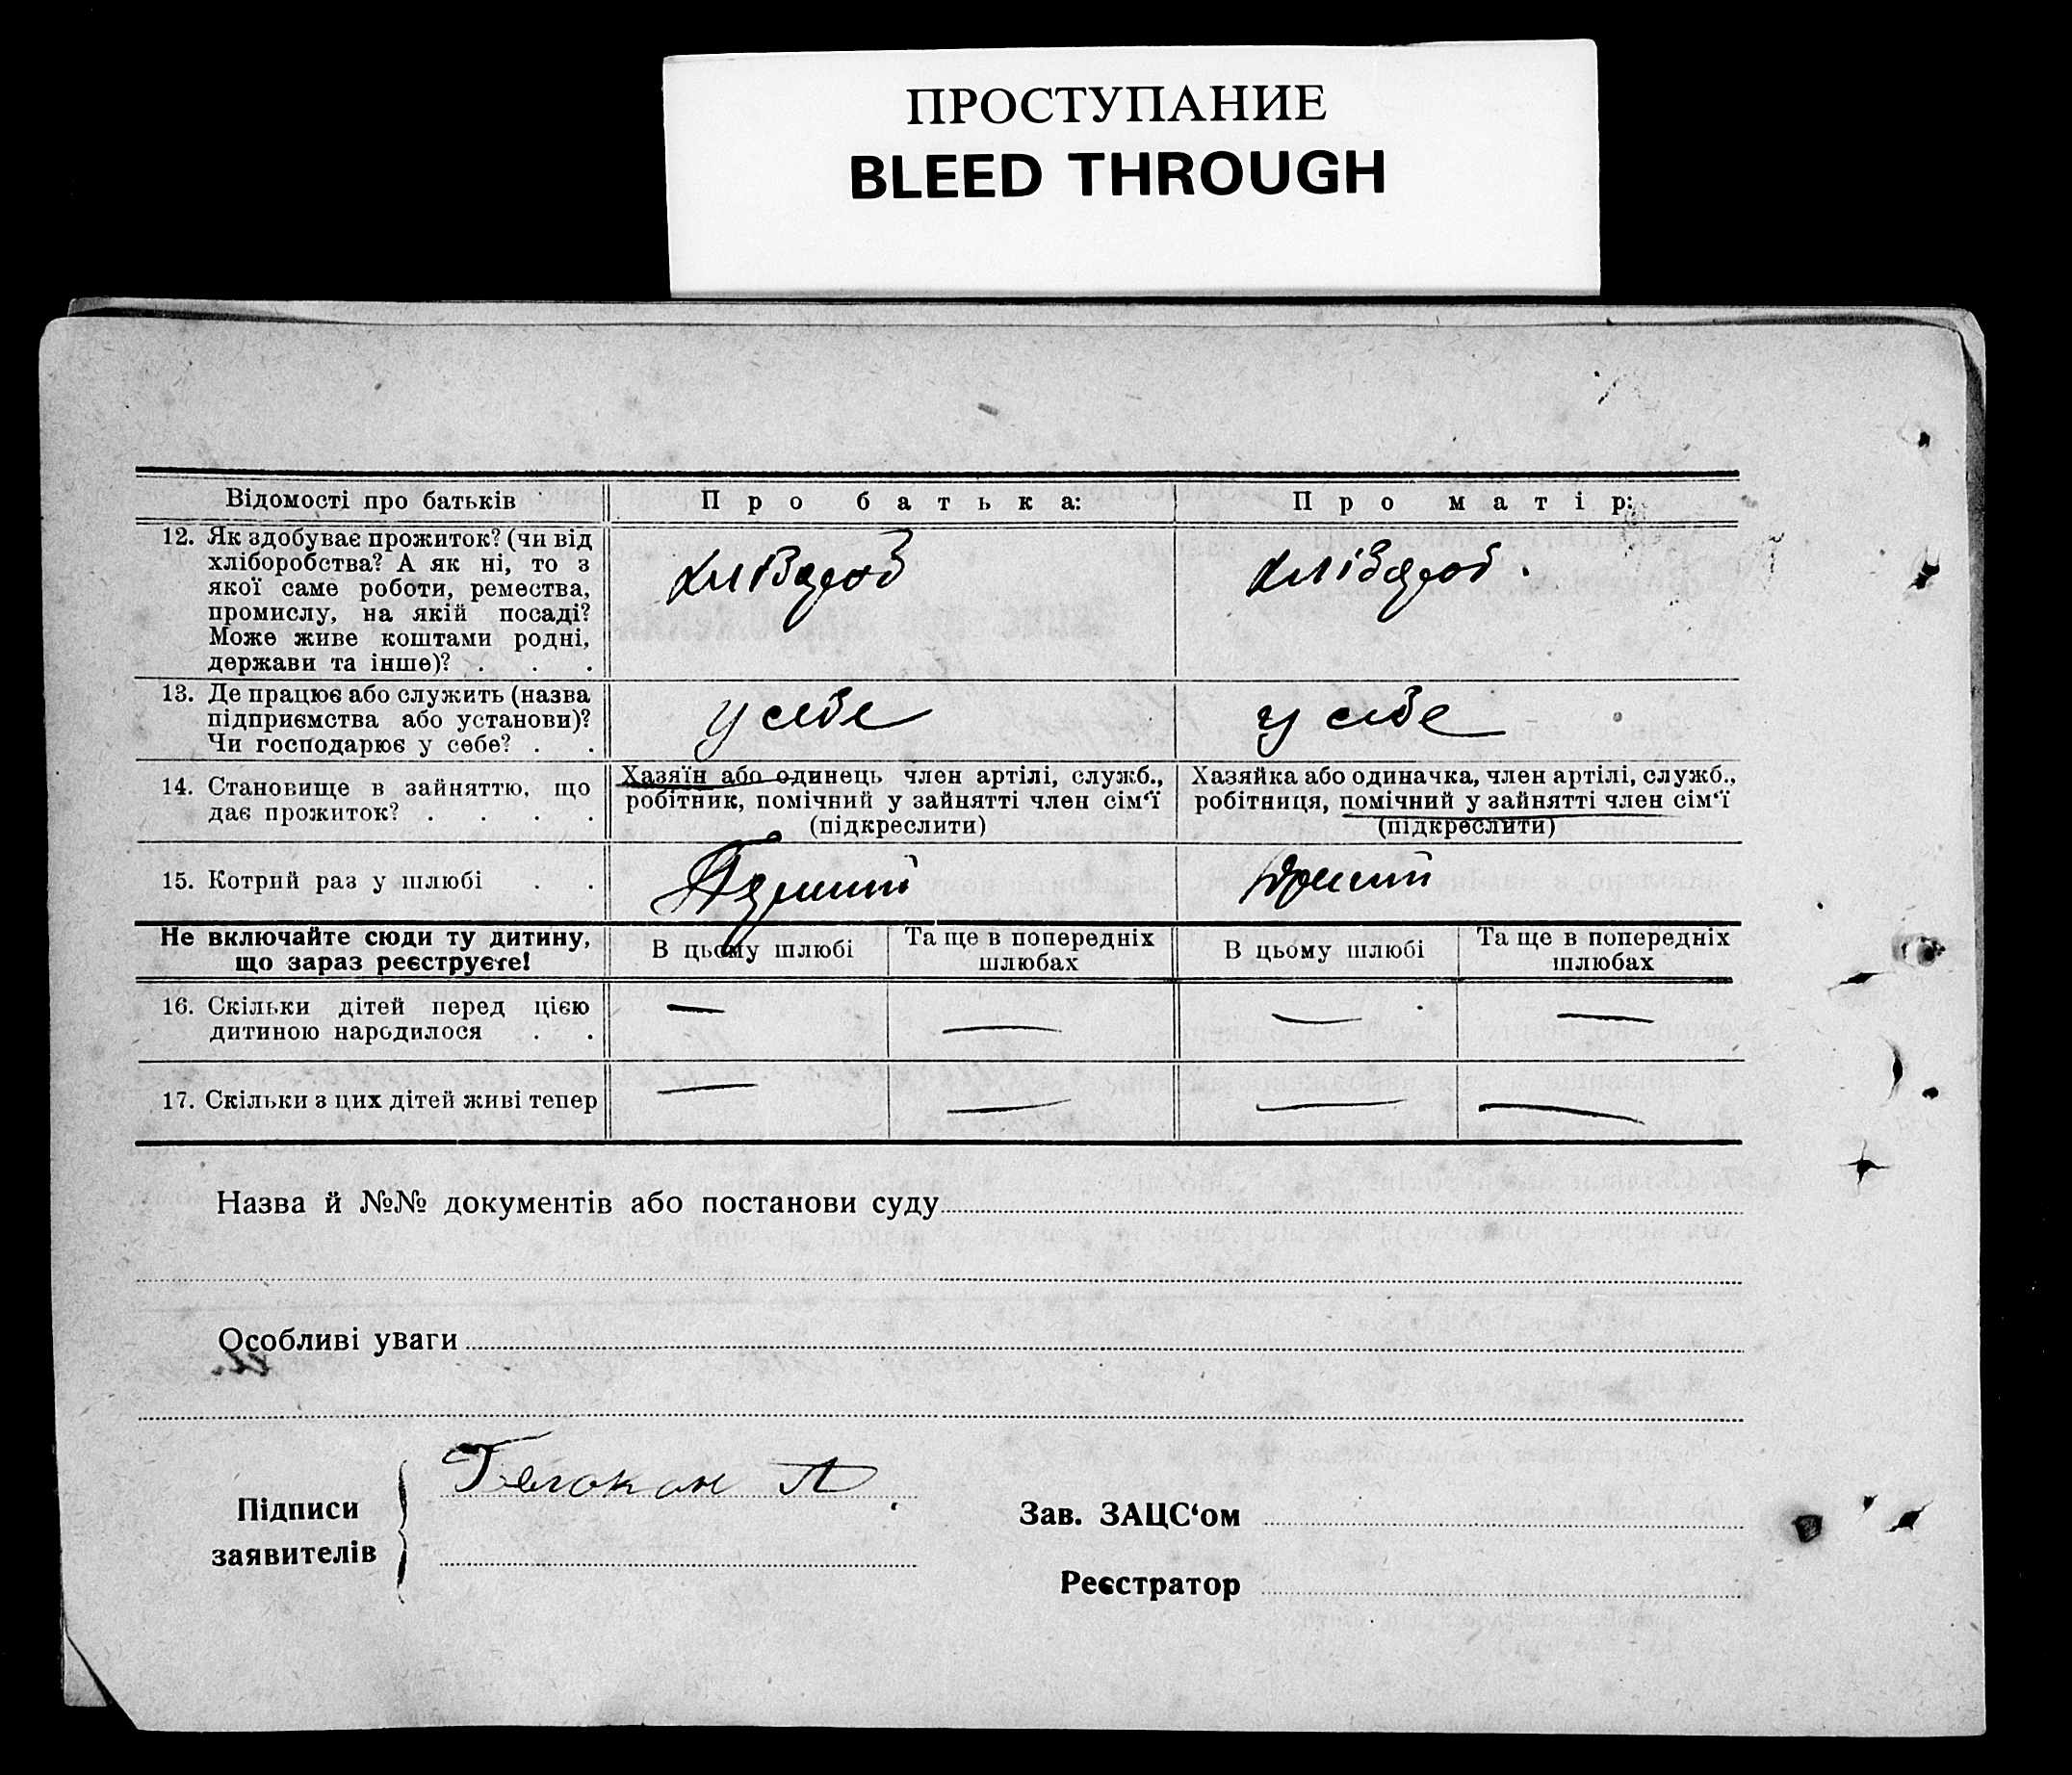 ПРОСТУПАНИЕ
BLEED THROUGH
Відомості про батьків
Про батька:
Про матір:
12. Як здобуває прожиток? (чи від
хліборобства? А як ні, то з
якої саме роботи, ремества,
промислу, на якій посаді?
Може живе коштами родні,
держави та інше)? . . .
хлібороб
хлібороб.
13. Де працює або служить (назва
підприємства або установи)?
Чи господарює у себе? . .
у себе
у себе
14. Становище в зайняттю, що
дає прожиток? . . . .
Хазяїн або одинець член артілі, служб.,
робітник, помічний у зайнятті член сім‘ї
(підкреслити)
Хазяйка або одиначка, член артілі, служб.,
робітниця, помічний у зайнятті член сім‘ї
(підкреслити)
15. Котрий раз у шлюбі . .
Не включайте сюди ту дитину,
що зараз реєструєте!
В цьому шлюбі
Та ще в попередніх
шлюбах
В цьому шлюбі
Та ще в попередніх
шлюбах
16. Скільки дітей перед цією
дитиною народилося . .
—
—
—
—
17. Скільки з цих дітей живі тепер
—
—
—
—
Назва й №№ документів або постанови суду
Особливі уваги
Підписи
заявителів
Зав. ЗАЦС‘ом
Реєстратор